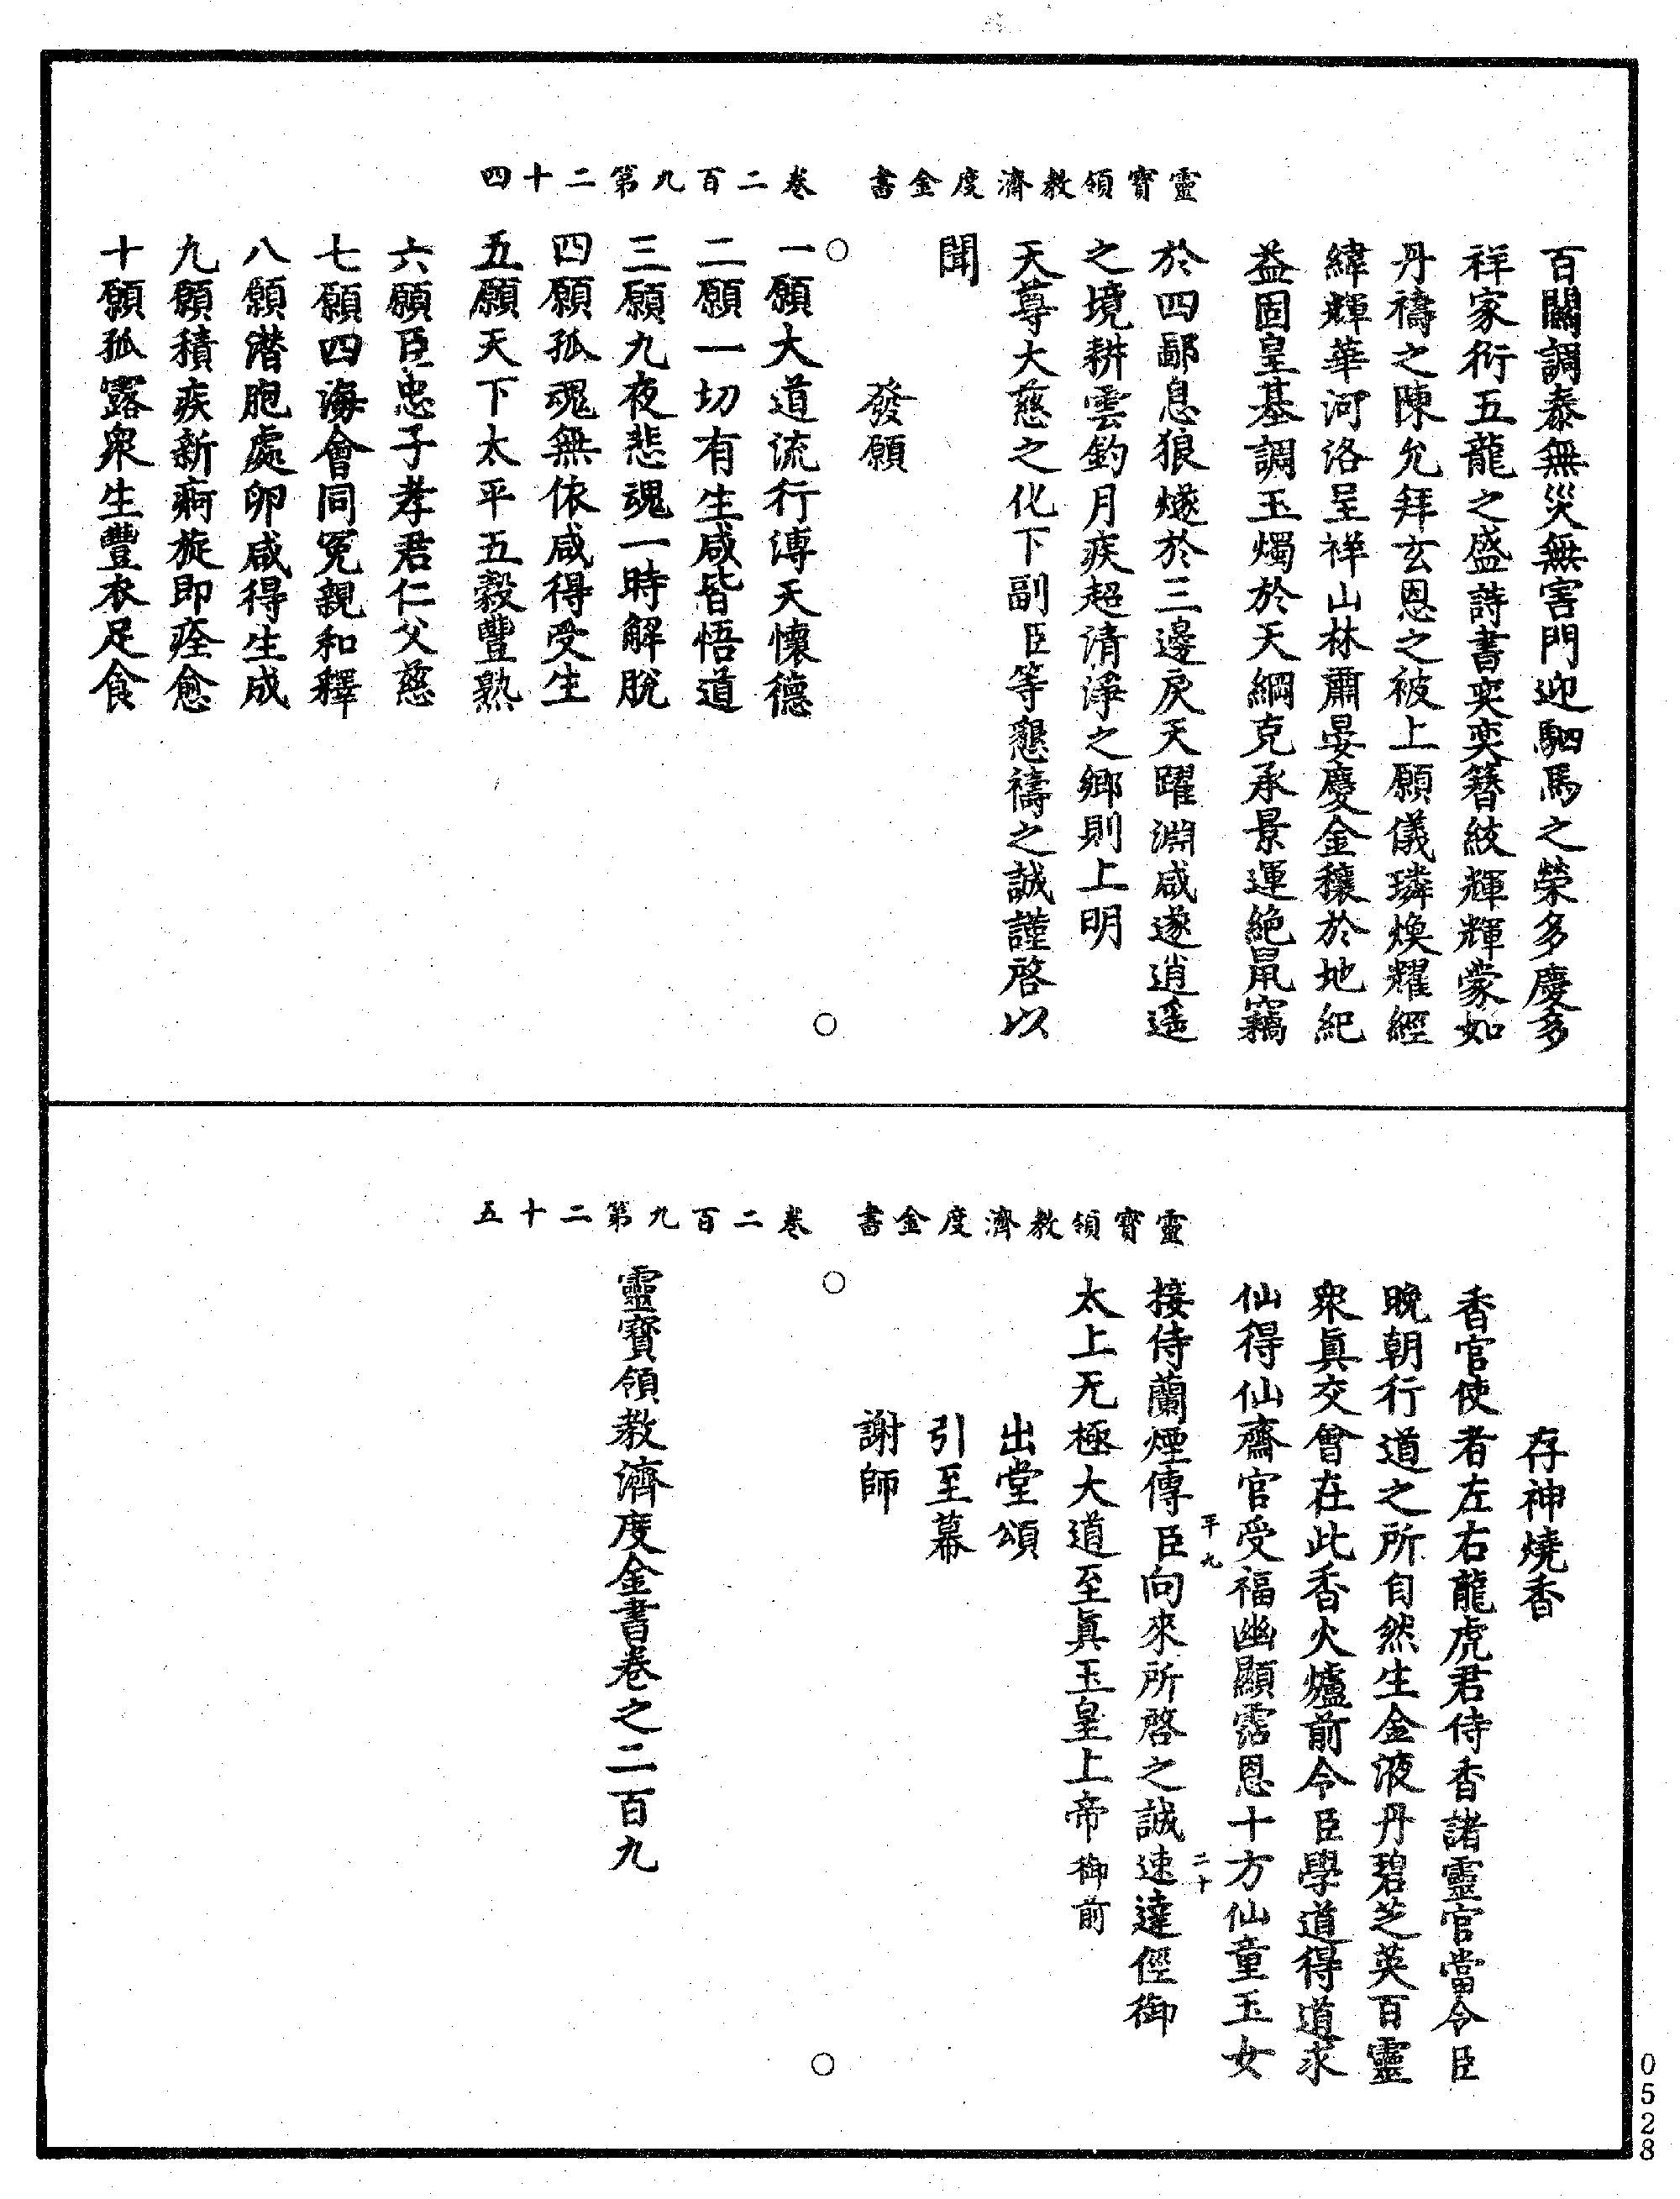 靈寶領教濟度金書　卷二百九第二十四
百關調泰無災無害門迎駟馬之榮多慶多
祥家衍五龍之盛詩書奕奕簪紱輝輝蒙如
丹禱之陳允拜玄恩之被上願儀璘煥耀經
緯輝華河洛呈祥山林肅晏慶金穰於地紀
益固皇基調玉燭於天綱克承景運絕鼠竊
於四鄙息狼燧於三邊戾天躍淵咸遂逍遥
之境耕雲釣月疾超清淨之鄉則上明
天尊大慈之化下副臣等懇禱之誠謹啓以
聞
發願
一願大道流行溥天懷德
二願一切有生咸皆悟道
三願九夜悲魂一時解脫
四願孤魂無依咸得受生
五願天下太平五穀豐熟
六願臣忠子孝君仁父慈
七願四海會同冤親和釋
八願潛胞處卵咸得生成
九願積疾新痾旋即痊愈
十願孤露衆生豐衣足食
靈寶領教濟度金書　卷二百九第二十五
存神燒香
香官使者左右龍虎君侍香諸靈官當令臣
晚朝行道之所自然生金液丹碧芝英百靈
衆眞交會在此香火爐前令臣學道得道求
仙得仙齋官受福幽顯霑恩十方仙童玉女
接侍蘭煙傳臣向來所啓之誠速達徑御
平九
二十
太上无極大道至眞玉皇上帝御前
出堂頌
引至幕
謝師
靈寶領教濟度金書卷之二百九
0528